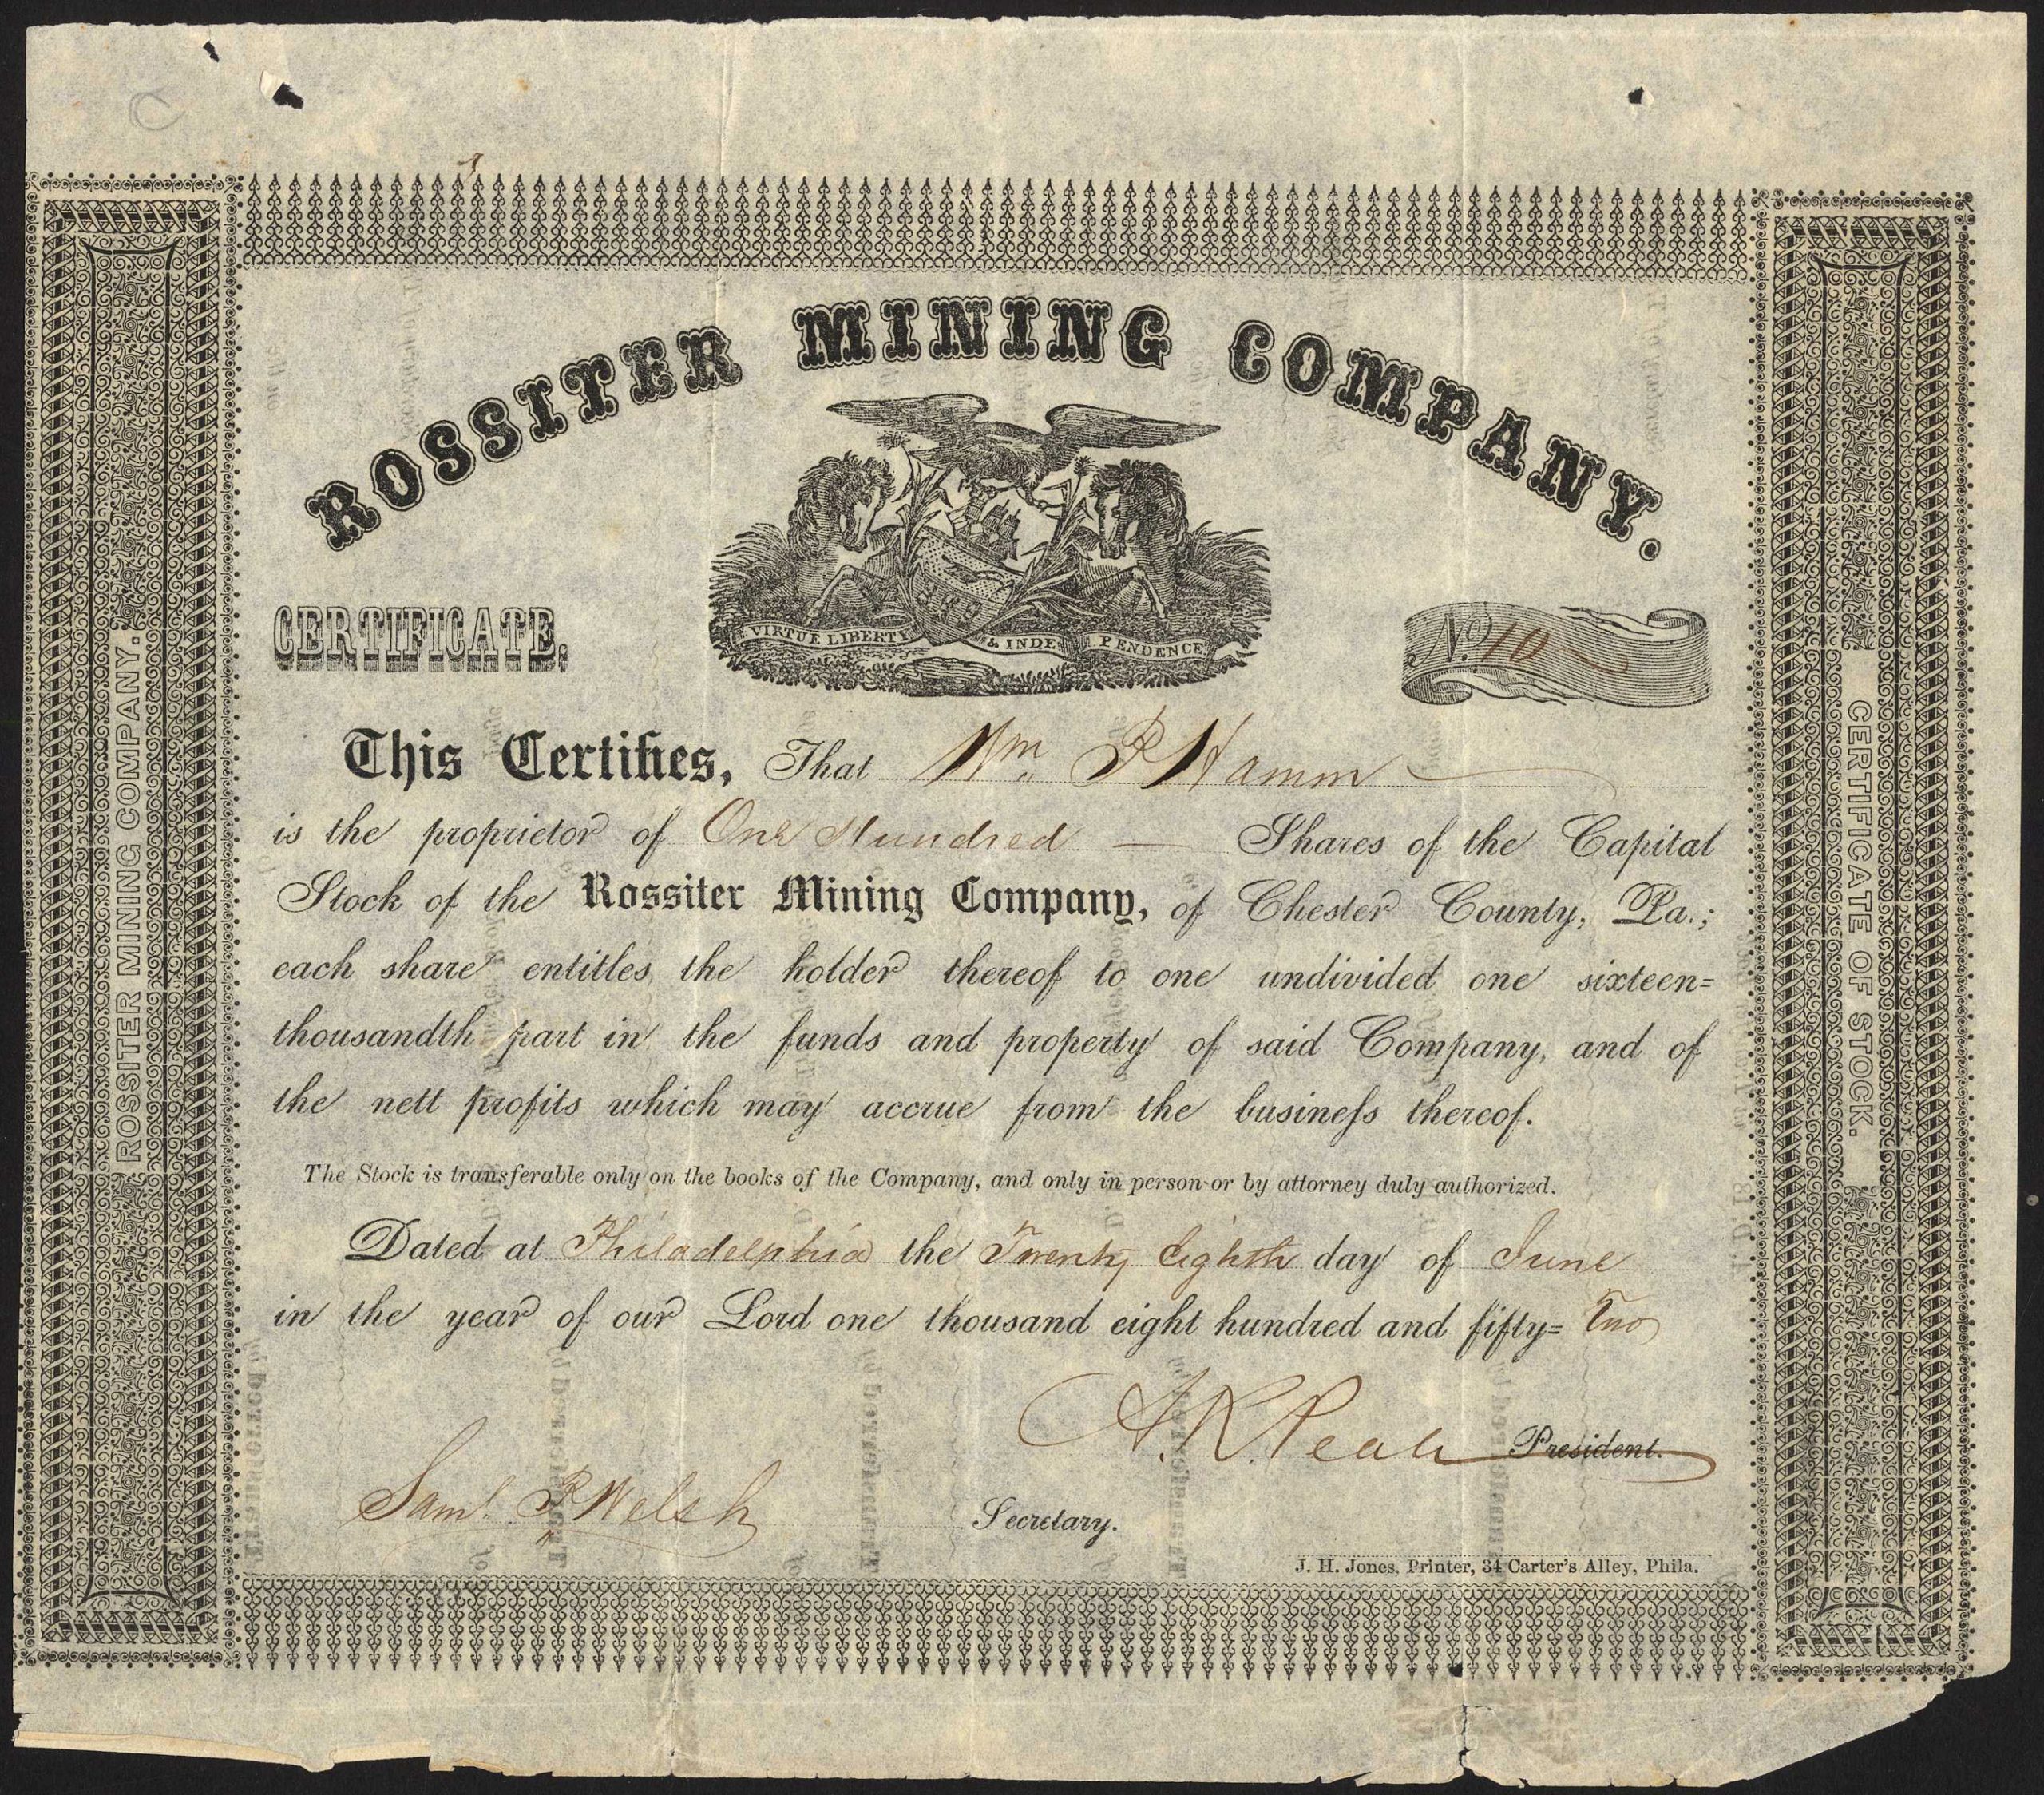 ROSSITER MINING COMPANY.
VIRTUE LIBERTY & INDEPENDENCE
CERTIFICATE.
No. 10
This Certifies, That Wm. P Hamm
is the proprietor of One Hundred — Shares of the Capital
Stock of the Rossiter Mining Company, of Chester County, Pa.;
each share entitles the holder thereof to one undivided one sixteen=
thousandth part in the funds and property of said Company, and of
the nett profits which may accrue from the business thereof.
The Stock is transferable only on the books of the Company, and only in person or by attorney duly authorized.
Dated at Philadelphia the Twenty Eighth day of June
in the year of our Lord one thousand eight hundred and fifty= Two
President.
Saml. P Welsh Secretary.
J. H. Jones, Printer, 34 Carter's Alley, Phila.
ROSSITER MINING COMPANY. ROSSITER MINING COMPANY.
CERTIFICATE OF STOCK.